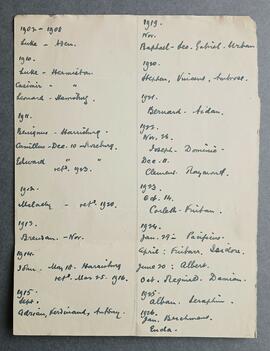 1907-1908
Luke - Ben.
1910.
Luke - Hermiston
Casimir - "
Leonard - Hamsburg
1911.
Benignus - Harrisburg
Camillus - Dec. 10 -
Edward " "
ret'd. 1923.
1912.
Malachy - ret'd. 1920.
1913.
Brendan. - Nov.
1914.
John. - May 18. Harrisburg
ret'd. Mar 25. 1916.
1915.
Sept.
Adrian, Ferdinand, Antony.
1919.
Nov.
Raphael - Leo. Gabriel. Urban
1920.
Stephen, Vincent, Ambrose.
1921.
Bernard - Aidan.
1922.
Nov. 26.
Joseph. Dominic -
Dec. 11.
Clement. Raymond.
1923.
Oct. 14.
Fintan.
1924.
Jan. 29th Pacificus
April : Isidore.
June 20 : Albert.
Oct. Reginald Damian.
1925
Alban. Seraphin.
1926.
Jan. Berchmans
Enda.